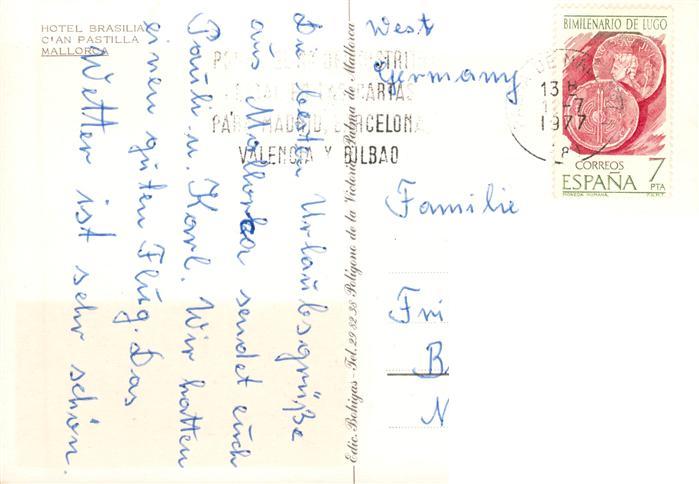 HOTEL BRASILIA
C'AN PASTILLA
MALLORCA
Die besten Urlaubsgrüße
aus Mallorca sendet euch
Paul u. Karl. Wir hatten
einen guten Flug. Das
Wetter ist sehr schön.
Edic. Bohigas - Tel. 29 82 38 Polígono de la Victoria Palma de Mallorca
PARA MADRID, BARCELONA,
VALENCIA Y BILBAO
13
1977
BIMILENARIO DE LUGO
CORREOS
ESPAÑA
7
PTA
MONEDA ROMANA
F.N.M.T.
West
Germany
Familie
Fri
B
N